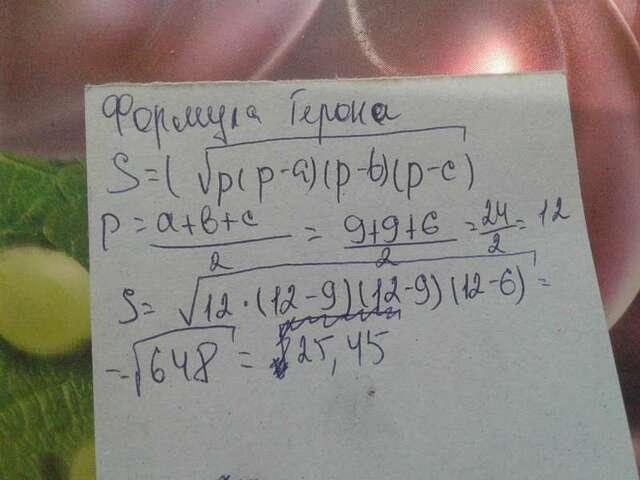 Формула Герона
S=(√p(p-a)(p-b)(p-c)
p = a+b+c/2 = 9+9+6/2 = 24/2 = 12
S= √12·(12-9)(12-9)(12-6) =
= √648 = 25,45